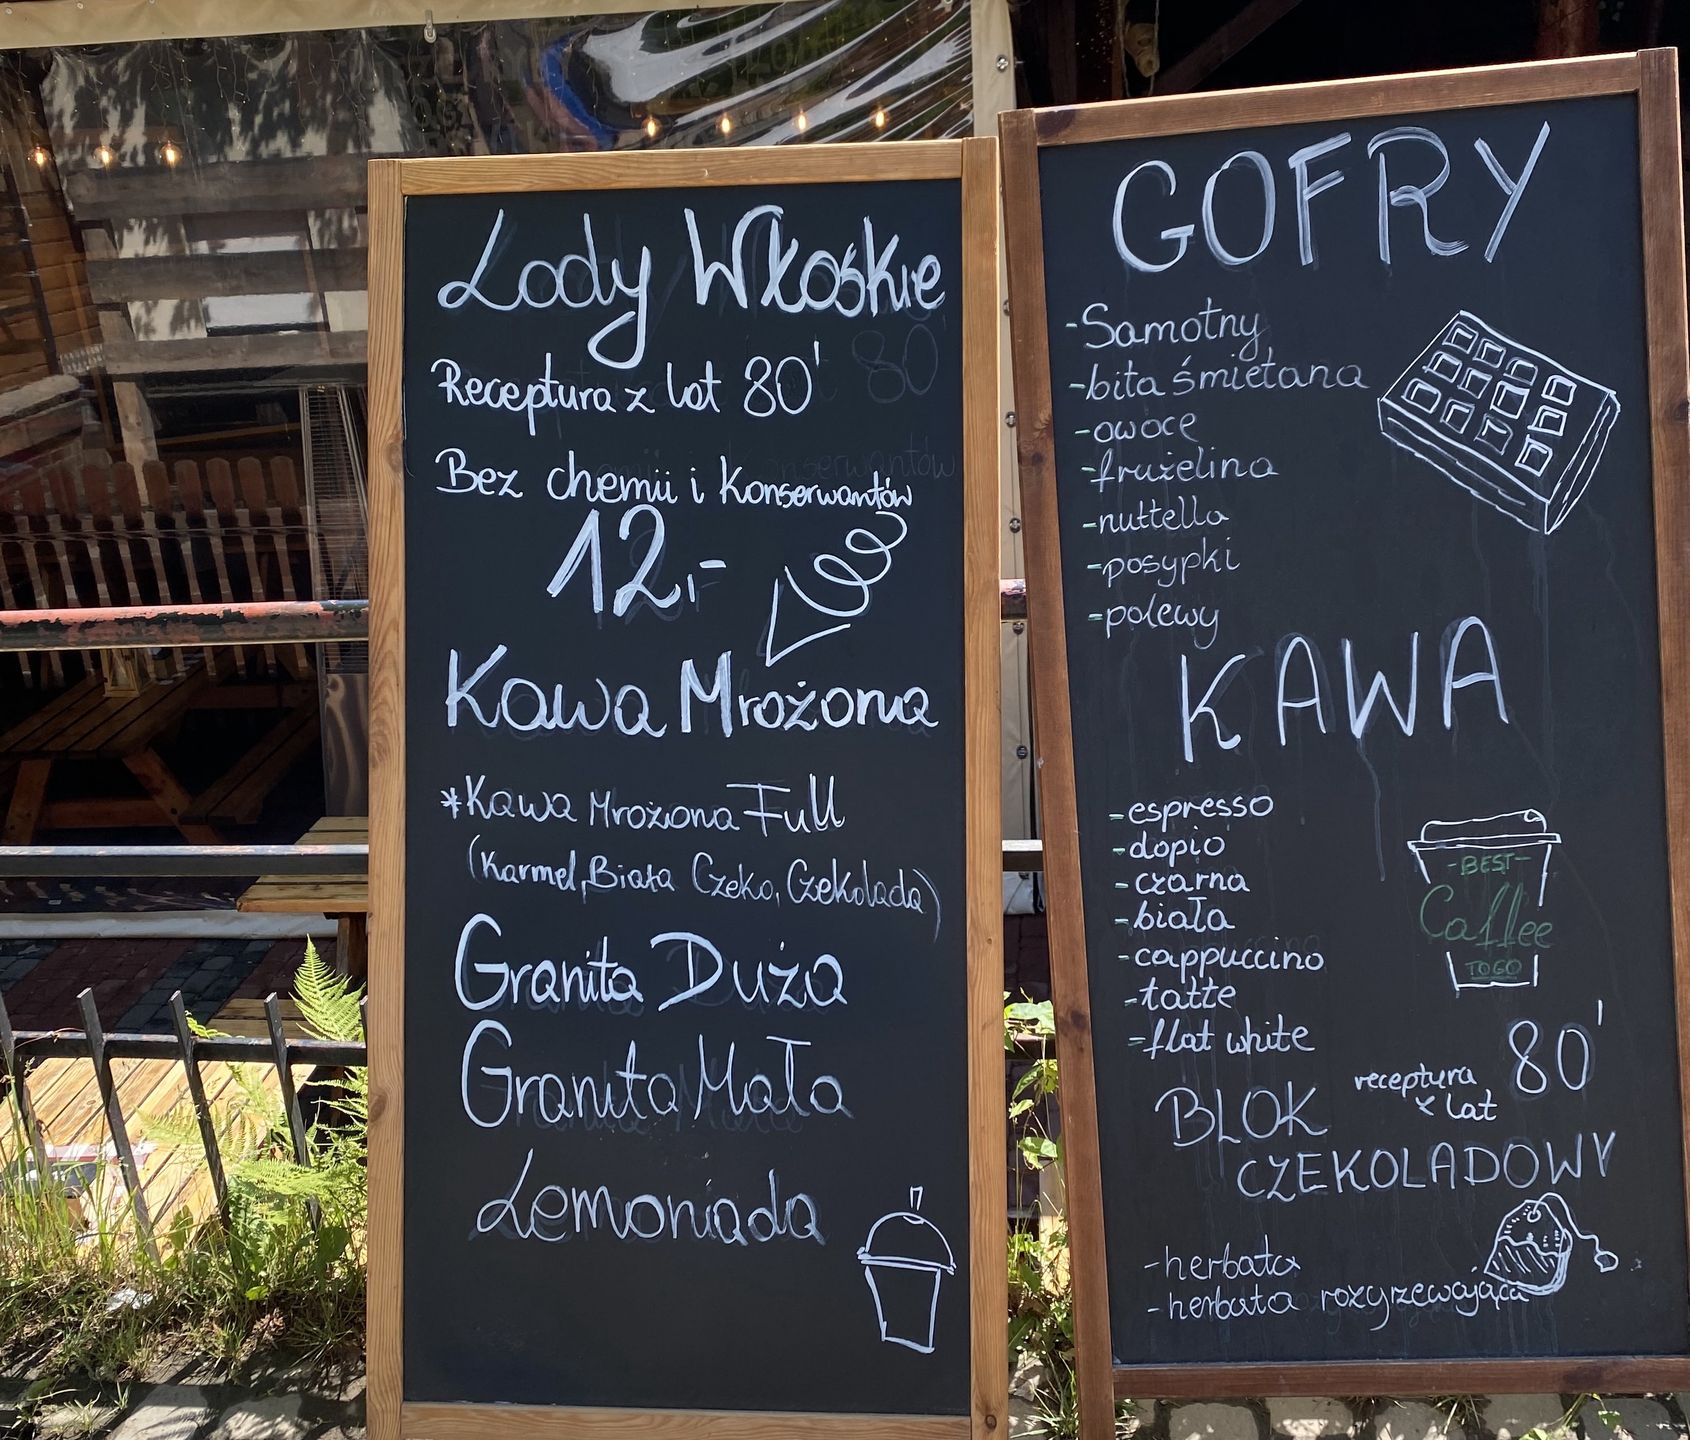 Lody Włoskie
Receptura z lat 80'
Bez chemii i Konserwantów
12,-
Kawa Mrożona
*Kawa Mrożona Full
(Karmel, Biała Czeko, Czekolada)
Granita Duża
Granita Mała
Lemoniada
GOFRY
-Samotny
-bita śmietana
-owoce
-frużelina
-nuttella
-posypki
-polewy
KAWA
-espresso
-dopio
-czarna
-biała
-cappuccino
-latte
-flat white
-BEST-
Coffee
TOGO
receptura
z lat 80'
BLOK
CZEKOLADOWY
-herbata
-herbata rozgrzewająca